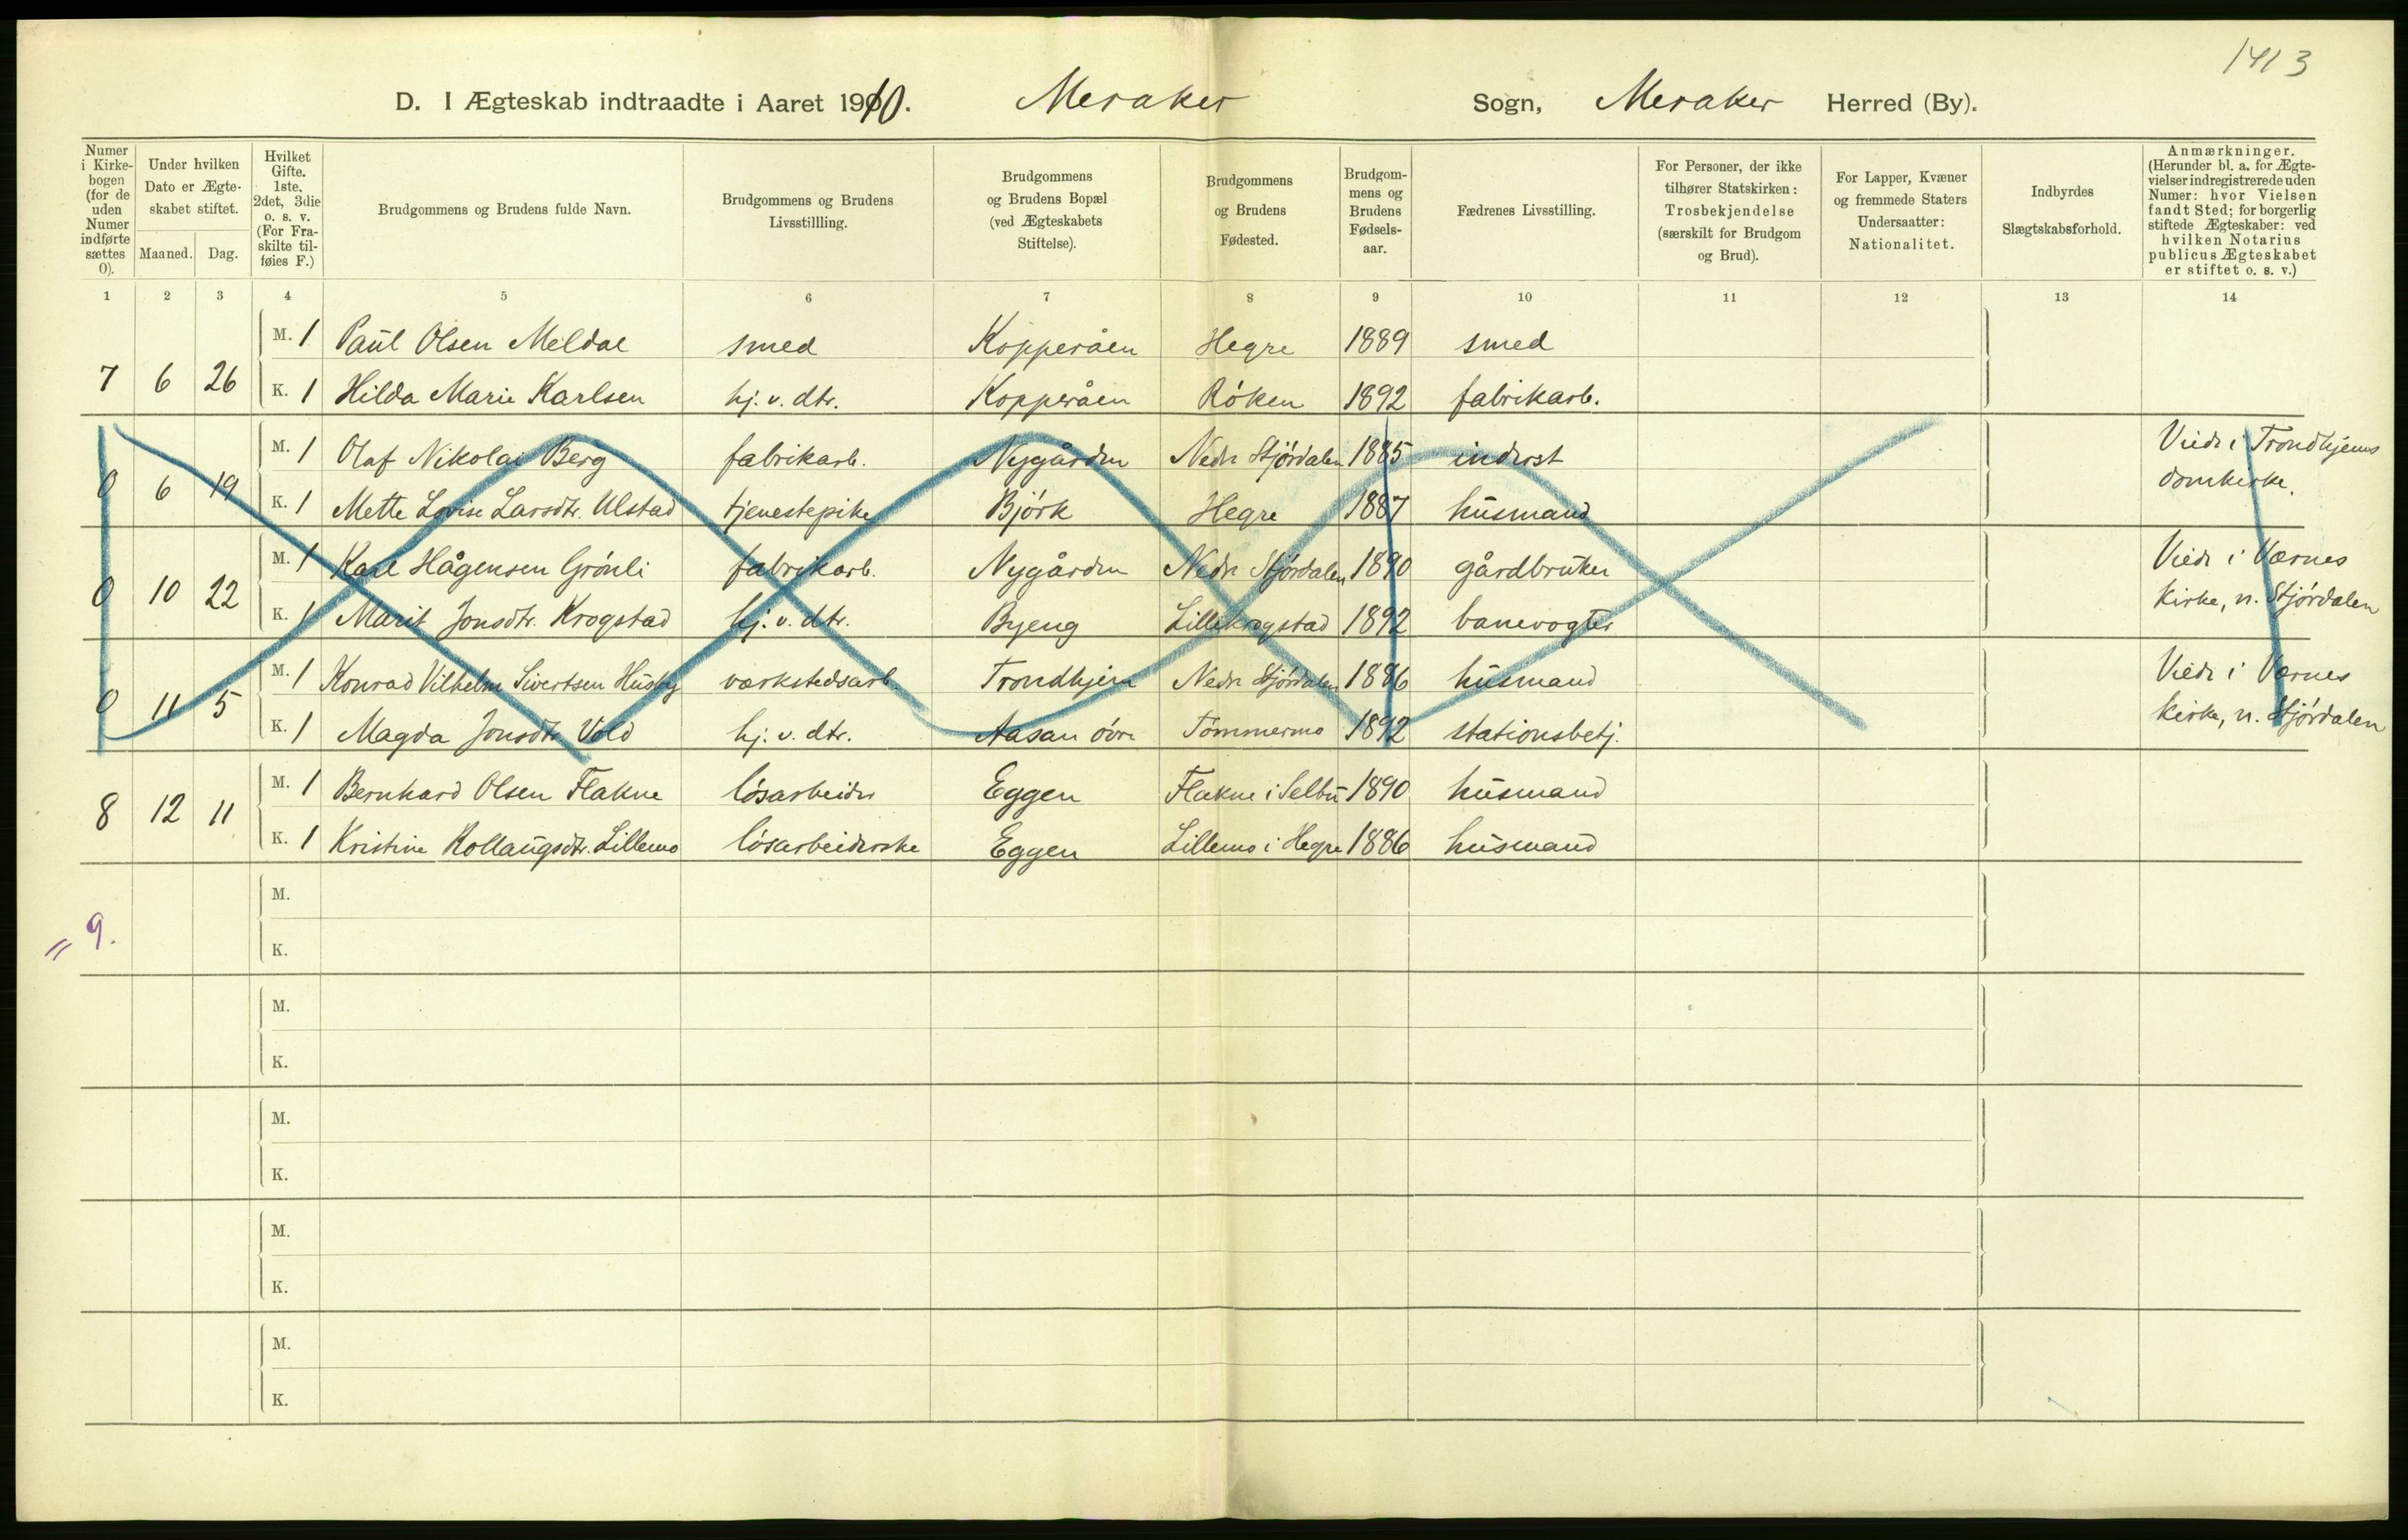 1413
D. I Ægteskab indtraadte i Aaret 1910. Meraker Sogn, Meraker Herred (By).
Numer i Kirkebogen (for de uden Numer indførte sættes 0).
Under hvilken Dato er Ægteskabet stiftet.
Maaned. Dag.
Hvilket Gifte. 1ste, 2det, 3die o. s. v. (For Fraskilte tilføies F.)
Brudgommens og Brudens fulde Navn.
Brudgommens og Brudens Livsstillling.
Brudgommens og Brudens Bopæl (ved Ægteskabets Stiftelse).
Brudgommens og Brudens Fødested.
Brudgommens og Brudens Fødselsaar.
Fædrenes Livsstilling.
For Personer, der ikke tilhører Statskirken: Trosbekjendelse (særskilt for Brudgom og Brud).
For Lapper, Kvæner og fremmede Staters Undersaatter: Nationalitet.
Indbyrdes Slægtskabsforhold.
Anmærkninger. (Herunder bl. a. for Ægtevielser indregistrerede uden Numer: hvor Vielsen fandt Sted; for borgerlig stiftede Ægteskaber: ved hvilken Notarius publicus Ægteskabet er stiftet o. s. v.)
1 2 3 4 5 6 7 8 9 10 11 12 13 14
M. 1 Paul Olsen Meldal smed Kopperåen Hegre 1889 smed
7 6 26
K. 1 Hilda Marie Karlsen hj. v. dtr. Kopperåen Röken 1892 fabrikarb.
M. 1 Olaf Nikolai Berg fabrikarb. Nygården Nedre Stjördalen 1885 inderst Viede i Trondhjems
0 6 19
K. 1 Mette Lovise Larsdtr. Ulstad tjenestepike Björk Hegre 1887 husmand domkirke.
M. 1 Karl Hågensen Grönli fabrikarb. Nygården Nedre Stjördalen 1890 gårdbruker Viede i Værnes
0 10 22
K. 1 Marit Jonsdtr. Krogstad hj. v. dtr. Byeng Lillekrogstad 1892 banevogter Kirke, n. Stjördalen
M. 1 Konrad Vilhelm Sivertsen Husby værkstedsarb. Trondhjem Nedre Stjördalen 1886 husmand Viede i Værnes
0 11 5
K. 1 Magda Jonsdtr. Vold hj. v. dtr. Aasan övre Tömmermo 1892 stationsbetj. Kirke, n. Stjördalen
M. 1 Bernhard Olsen Flakne lösarbeider Eggen Flakne i Selbu 1890 husmand
8 12 11
K. 1 Kristine Kollaugsdtr. Lillemo lösarbeiderske Eggen Lillemo i Hegre 1886 husmand
M.
= 9.
K.
M.
K.
M.
K.
M.
K.
M.
K.